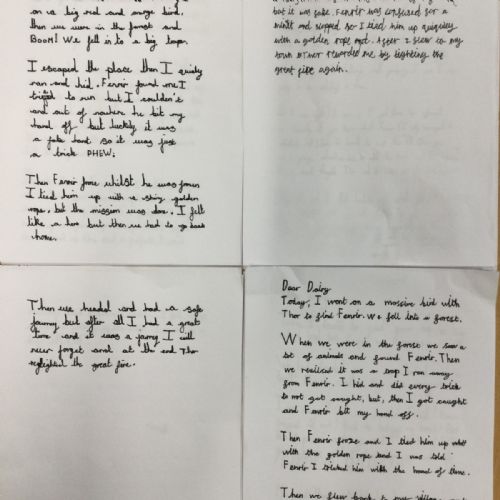 on a big red and orange bird,
then we were in the forest and
BOOM! We fell in to a big trap.
I escaped the place then I quickly
ran and hid. Fenrir found me I
to run but I couldn't
and out of nowhere he bit my
hand off but luckily it was
a fake hand so it was just
a trick PHEW.
Then Fenrir froze whilst he was frozen
I tied him up with a shiny golden
rope, but the mission was done. I felt
like a hero but then we had to go back
home.
but it was fake. Fenrir was confused for a
minit and stopped so I tied him up quickley
with a golden rope. After I flew to my
town rewarded me by lighting the
great fire again.
Then we headed and had a safe
journey but after all I had a great
time and it was a jurney I will
never forget and at the end Thor
relighted the great fire.
Dear Dairy
Today, I went on a massive bird with
Thor to find Fenrir. We fell into a forest.
When we were in the forest we saw a
lot of animals and found Fenrir. Then
we realised it was a trap I ran away
from Fenrir. I hid and did every trick
to not get caught, but, then I got caught
and Fenrir bit my hand off.
Then Fenrir froze and I tied him up
with the golden rope and I was told
Fenrir I tricked him with the hand of time.
Then we flew back to our village and